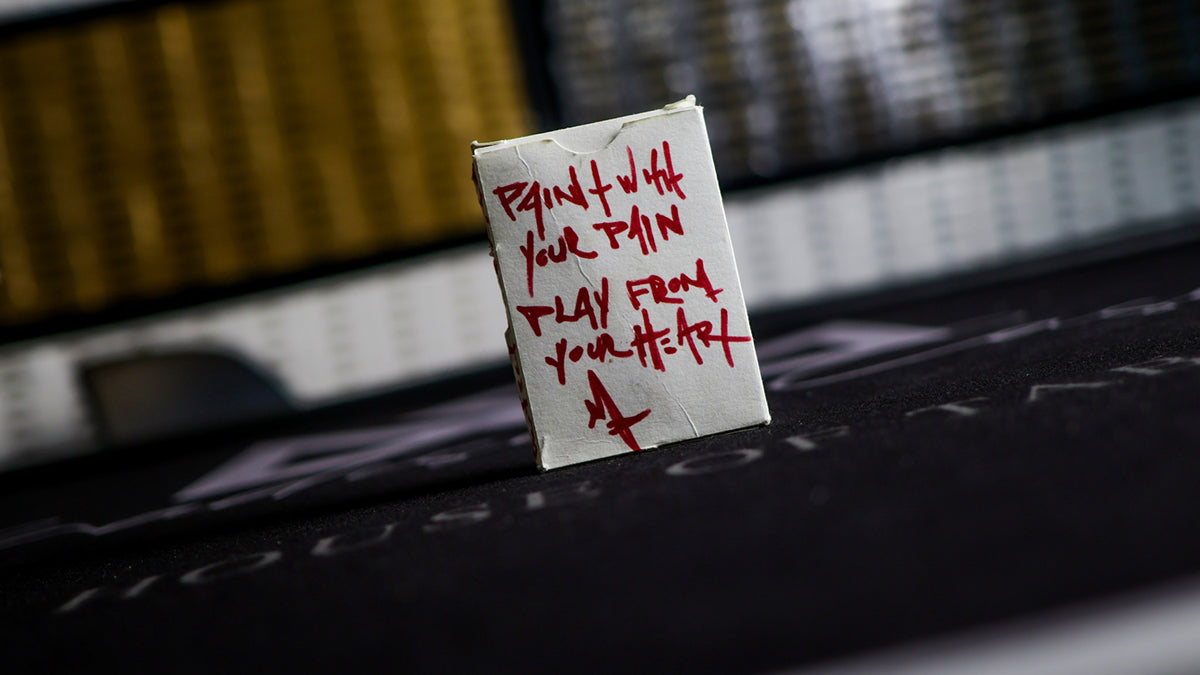 PAINT WITH
YOUR PAIN
PLAY FROM
YOUR HEART
HOUSE OF